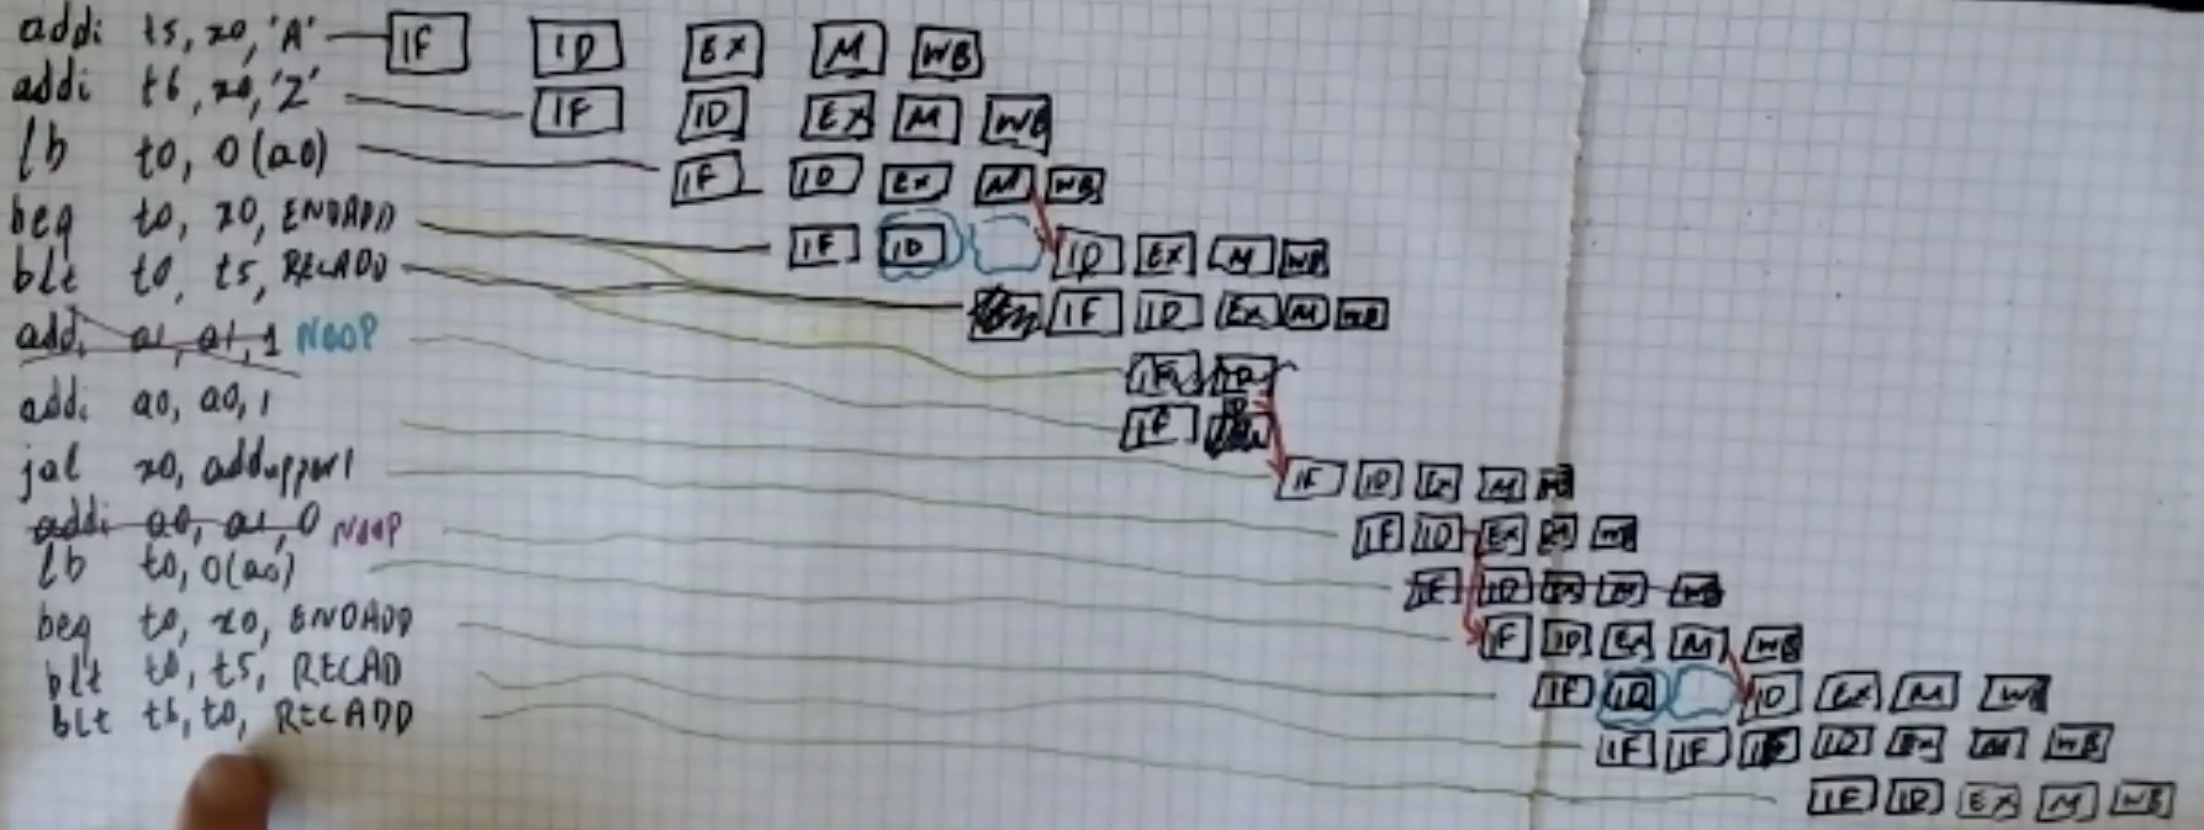 addi t5, x0, 'A' IF ID EX M WB
addi t6, x0, 'Z' IF ID EX M WB
lb t0, 0(a0) IF ID EX M WB
beq t0, x0, ENDADD IF ID ID EX M WB
blt t0, t5, RECADD IF ID EX M WB
addi a1, a1, 1 NOOP IF ID
addi a0, a0, 1 IF
jal x0, addupper1 IF ID EX M WB
addi a0, a1, 0 NOOP IF ID EX M WB
lb t0, 0(a0) IF ID EX M WB
beq t0, x0, ENDADD IF ID EX M WB
blt t0, t5, RECAD IF ID ID EX M WB
blt t6, t0, RECADD IF IF IF ID EX M WB
IF ID EX M WB